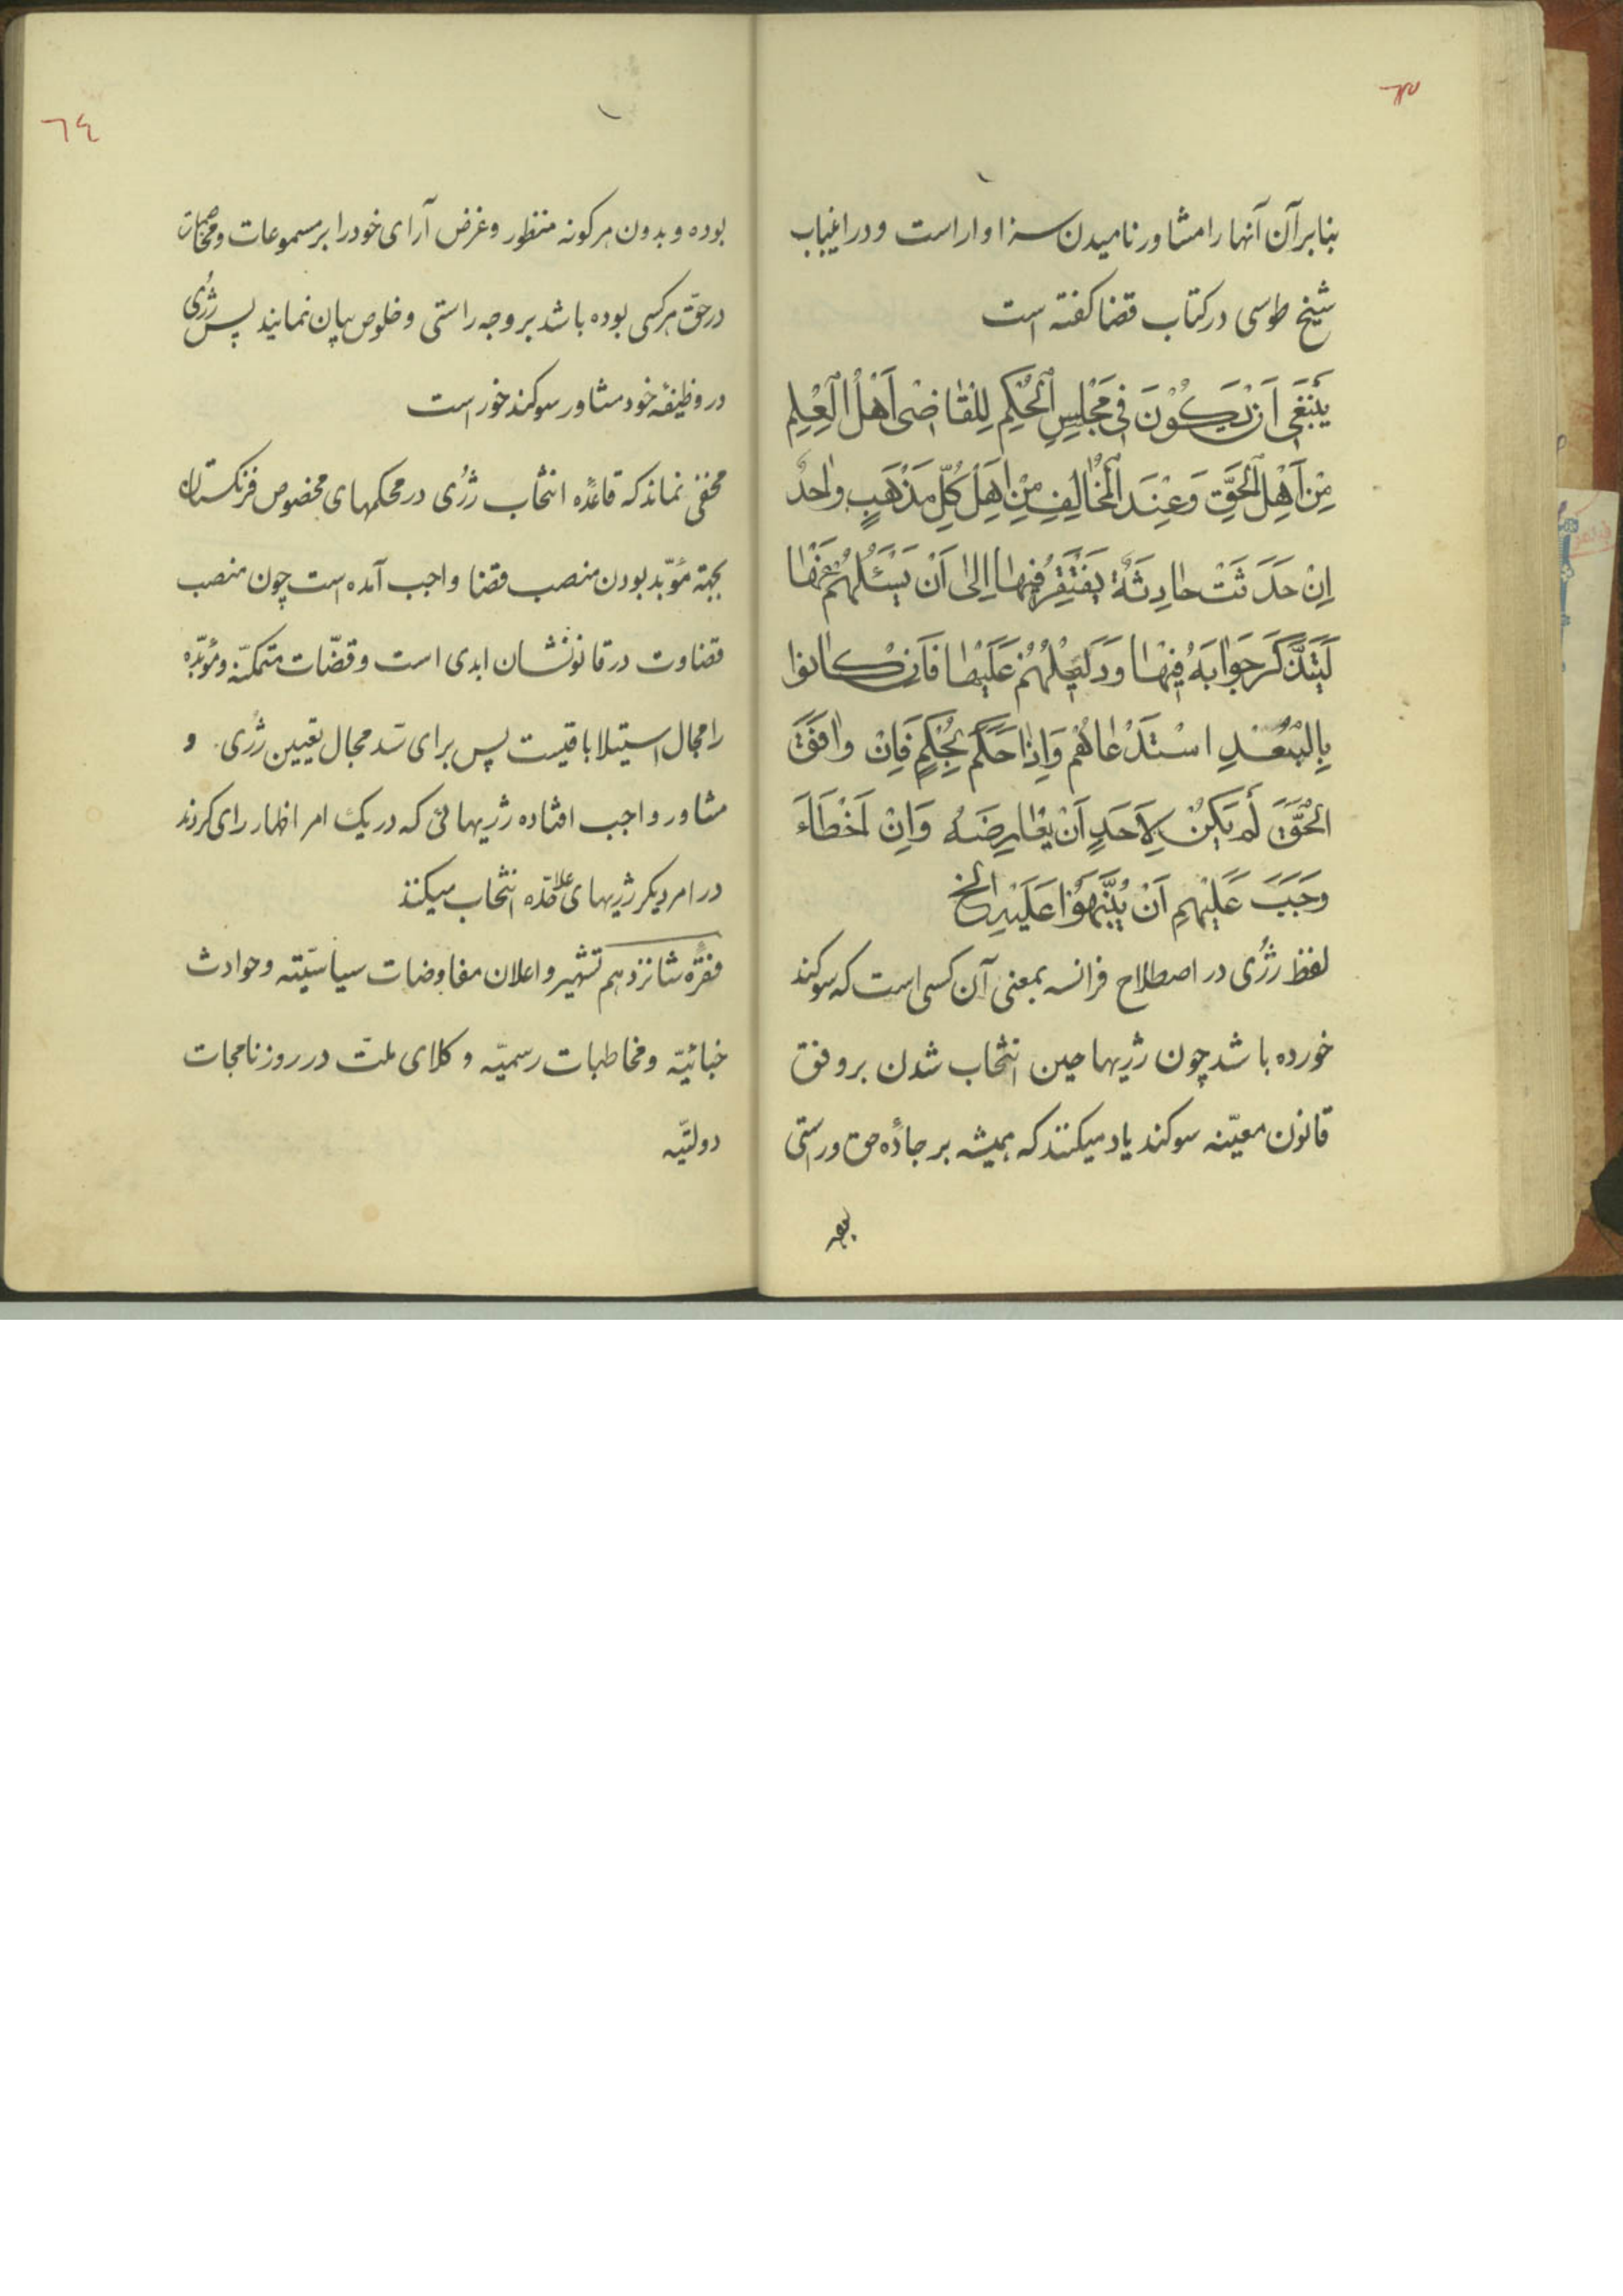 ٦٣
بنابر آن آنها را مشاور نامیدن سزاوار است و در اغیاب
شیخ طوسی در کتاب قضا کفته است
یَنْبَغی اَنْ یَکُوْنَ فی مَجْلِسِ الْحُکْمِ لِلْقاضی اَهْلُ الْعِلِمِ
مِنْ اَهْلِ الْحَقِّ وَعِنْدَ الْمُخالِفِ مِنْ اَهْلِ کُلِّ مَذْهَبٍ واحدٌ
اِنْ حَدَثَتْ حادِثَةٌ یَفْتَقِرُ فیها اِلیٰ اَنْ یَسْئَلَهُمْ عَنْها
لَیَتَذَّکَرَ جَوابَهُ فیها وَدَلیلَهُمْ عَلَیْها فَاَنْ کانوا
بِالْبُعْدِ اسْتَدْعاهُم وَاِذا حَکَمَ بِحُکْمٍ فَاِنْ وافَقَ
الْحَقَّ لَمْ یَکُنْ لِاَحَدٍ اَنْ یُعارِضَهُ وَاِنْ اَخْطَاءَ
وَجَبَ عَلَیْهِمِ اَنْ یُنَبِّهَوُا عَلَیْهِ الخ
لفظ ژُری در اصطلاح فرانسه بمعنی آن کسی است که سوکند
خورده باشد چون ژریها حین انتخاب شدن بر وفق
قانون معیّنه سوکند یاد میکنند که همیشه بر جادّهٔ حق و راستی
٦٤
بوده و بدون هر کونه منظور و غرض آرای خود را بر مسموعات و مخاصمات
در حقّ هر کسی بوده باشد بر وجه راستی و خلوص بیان نمایند پس ژُری
در وظیفهٔ خود مشاور سوکند خور است
مخفی نماند که قاعدهٔ انتخاب ژرُی در محکمهای مخصوص فرنکستان
بجهة مؤبّد بودن منصب قضا واجب آمده است چون منصب
قضاوت در قانونشان ابدی است و قضّات متمکنّه و مؤبّده
را مجال استیلا باقیست پس برای سّد مجال تعیین ژُری و
مشاور واجب افتاده ژریهائی که در یک امر اظهار رای کردند
در امر دیکر ژریهای علاحّده انتخاب میکنند
فقرهٔ شانزدهم تشهیر و اعلان مفاوضات سیاسّیته و حوادث
خبائیّه و مخاطبات رسمیّه وکلای ملت در روزنامجات
دولتیّه